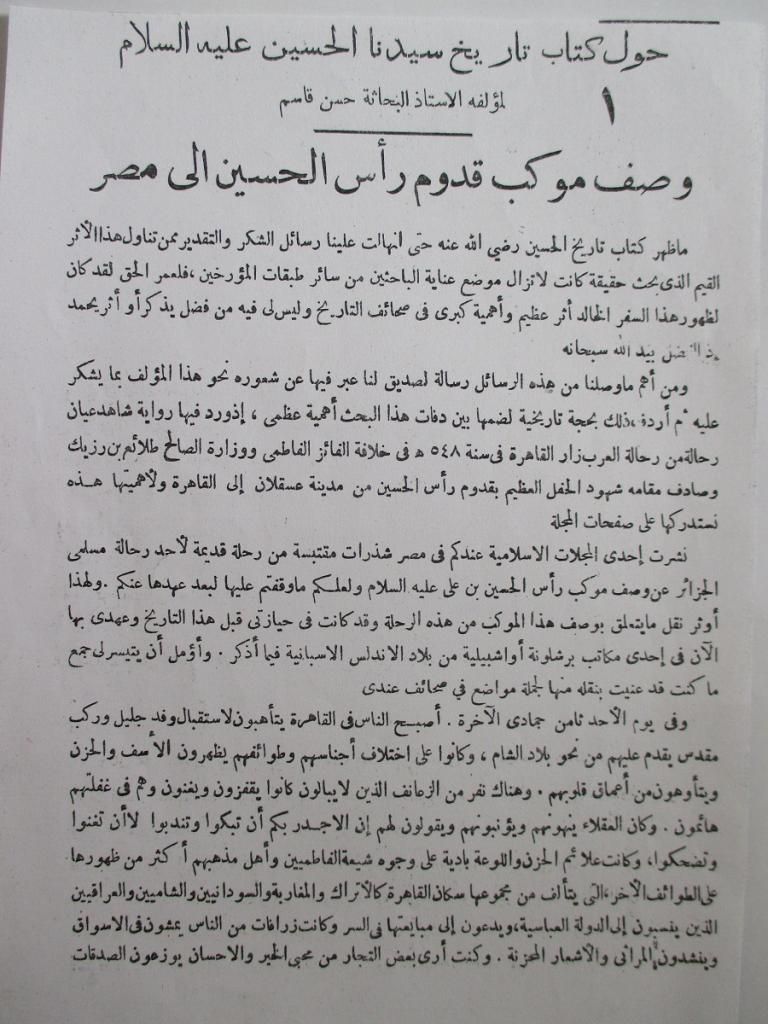 حول كتاب تاريخ سيدنا الحسين عليه السلام
١
لمؤلفه الاستاذ البحاثة حسن قاسم
وصف موكب قدوم رأس الحسين الى مصر
ماظهر كتاب تاريخ الحسين رضي الله عنه حتى انهالت علينا رسائل الشكر والتقدير ممن تناول هذا الأثر
القيم الذى بحث حقيقة كانت لاتزال موضع عناية الباحثين من سائر طبقات المؤرخين ، فلعمر الحق لقد كان
لظهور هذا السفر الخالد أثر عظيم وأهمية كبرى فى صحائف التاريخ وليس لى فيه من فضل يذكر أو أثر يحمد
بيد الله سبحانه
ومن أهم ماوصلنا من هذه الرسائل رسالة لصديق لنا عبر فيها عن شعوره نحو هذا المؤلف بما يشكر
عليه أردف ذلك بحجة تاريخية لضمها بين دفات هذا البحث أهمية عظمى ، إذ ورد فيها رواية شاهد عيان
رحالة من رحالة العرب زار القاهرة فى سنة ٥٤٨ ه فى خلافة الفائز الفاطمى ووزارة الصالح طلائع بن رزيك
وصادف مقامه شهود الحفل العظيم بقدوم رأس الحسين من مدينة عسقلان إلى القاهرة ولأهميتها هذه
نستدركها على صفحات المجلة
نشرت إحدى المجلات الاسلامية عندكم فى مصر شذرات مقتبسة من رحلة قديمة لأحد رحالة مسلمى
الجزائر عن وصف موكب رأس الحسين بن على عليه السلام ولعلكم ماوقفتم عليها لبعد عهدها عنكم . ولهذا
أوثر نقل مايتعلق بوصف هذا الموكب من هذه الرحلة وقد كانت فى حيازتى قبل هذا التاريخ وعهدى بها
الآن فى إحدى مكاتب برشلونة أو اشبيلية من بلاد الاندلس الاسبانية فيما أذكر . وأؤمل أن يتيسر لى جمع
ما كنت قد عنيت بنقله منها لجملة مواضع في صحائف عندى
وفى يوم الأحد ثامن جمادى الآخرة . أصبح الناس فى القاهرة يتأهبون لاستقبال وفد جليل وركب
مقدس يقدم عليهم من نحو بلاد الشام ، وكانوا على اختلاف أجناسهم وطوائفهم يظهرون الأسف والحزن
ويتأوهون من أعماق قلوبهم . وهناك نفر من الزعانف الذين لايبالون كانوا يقفزون ويغنون وهم فى غفلتهم
هائمون . وكان العقلاء ينهونهم ويؤنبونهم ويقولون لهم إن الاجدر بكم أن تبكوا وتندبوا لا أن تغنوا
وتضحكوا، وكانت علائم الحزن واللوعة بادية على وجوه شيعة الفاطميين وأهل مذهبهم أكثر من ظهورها
على الطوائف الأخر، التى يتألف من مجموعها سكان القاهرة كالأتراك والمغاربة والسودانيين والشاميين والعراقيين
الذين ينسبون إلى الدولة العباسية، ويدعون إلى مبايعتها فى السر وكانت زرافات من الناس يمشون فى الاسواق
وينشدون المراثى والأشعار المحزنة . وكنت أرى بعض التجار من محبى الخير والاحسان يوزعون الصدقات